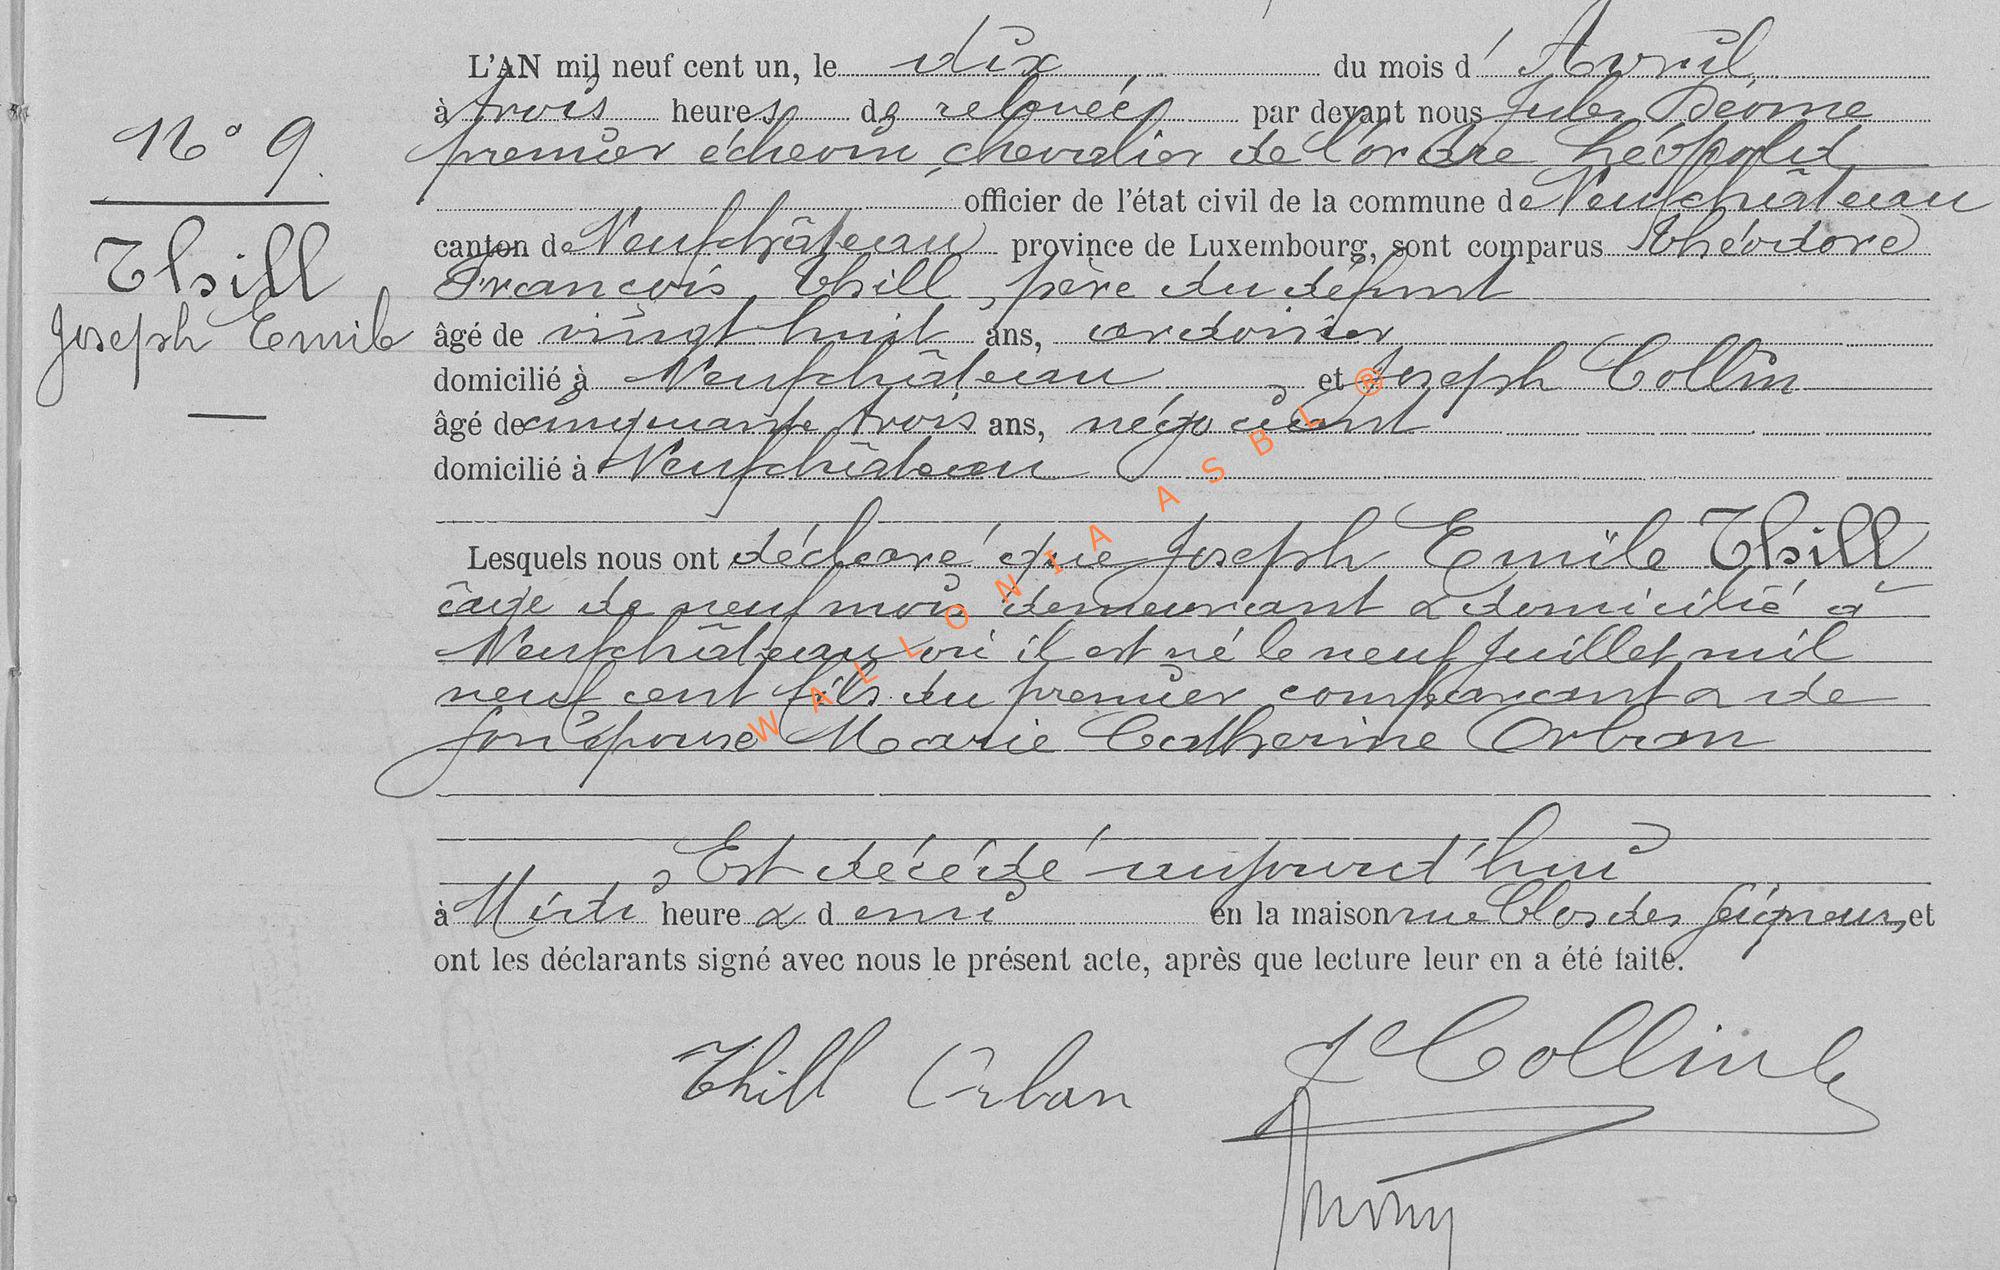 L'AN mil neuf cent un, le dix du mois d'Avril
à trois heures de relevée par devant nous Jules
premier échevin, chevalier de l'ordre Léopold
officier de l'état civil de la commune de Neufchâteau
canton de Neufchâteau province de Luxembourg, sont comparus Théodore
François Thill, père du défunt
âgé de vingt huit ans, ardoisier
domicilié à Neufchâteau et Joseph Collin
âgé de cinquante trois ans, négociant
domicilié à Neufchâteau
Lesquels nous ont déclaré que Joseph Emile Thill
âgé de neuf mois demeurant & domicilié à
Neufchâteau où il est né le neuf Juillet mil
neuf cent fils du premier comparant & de
son épouse Marie Catherine Orban
Est décédé aujourd'hui
à Midi heure & demi en la maison rue Clos des Seigneurs, et
ont les déclarants signé avec nous le présent acte, après que lecture leur en a été faite.
N° 9.
Thill
Joseph Emile
Thill Orban
J Collin
WALLONIA ASBL ®